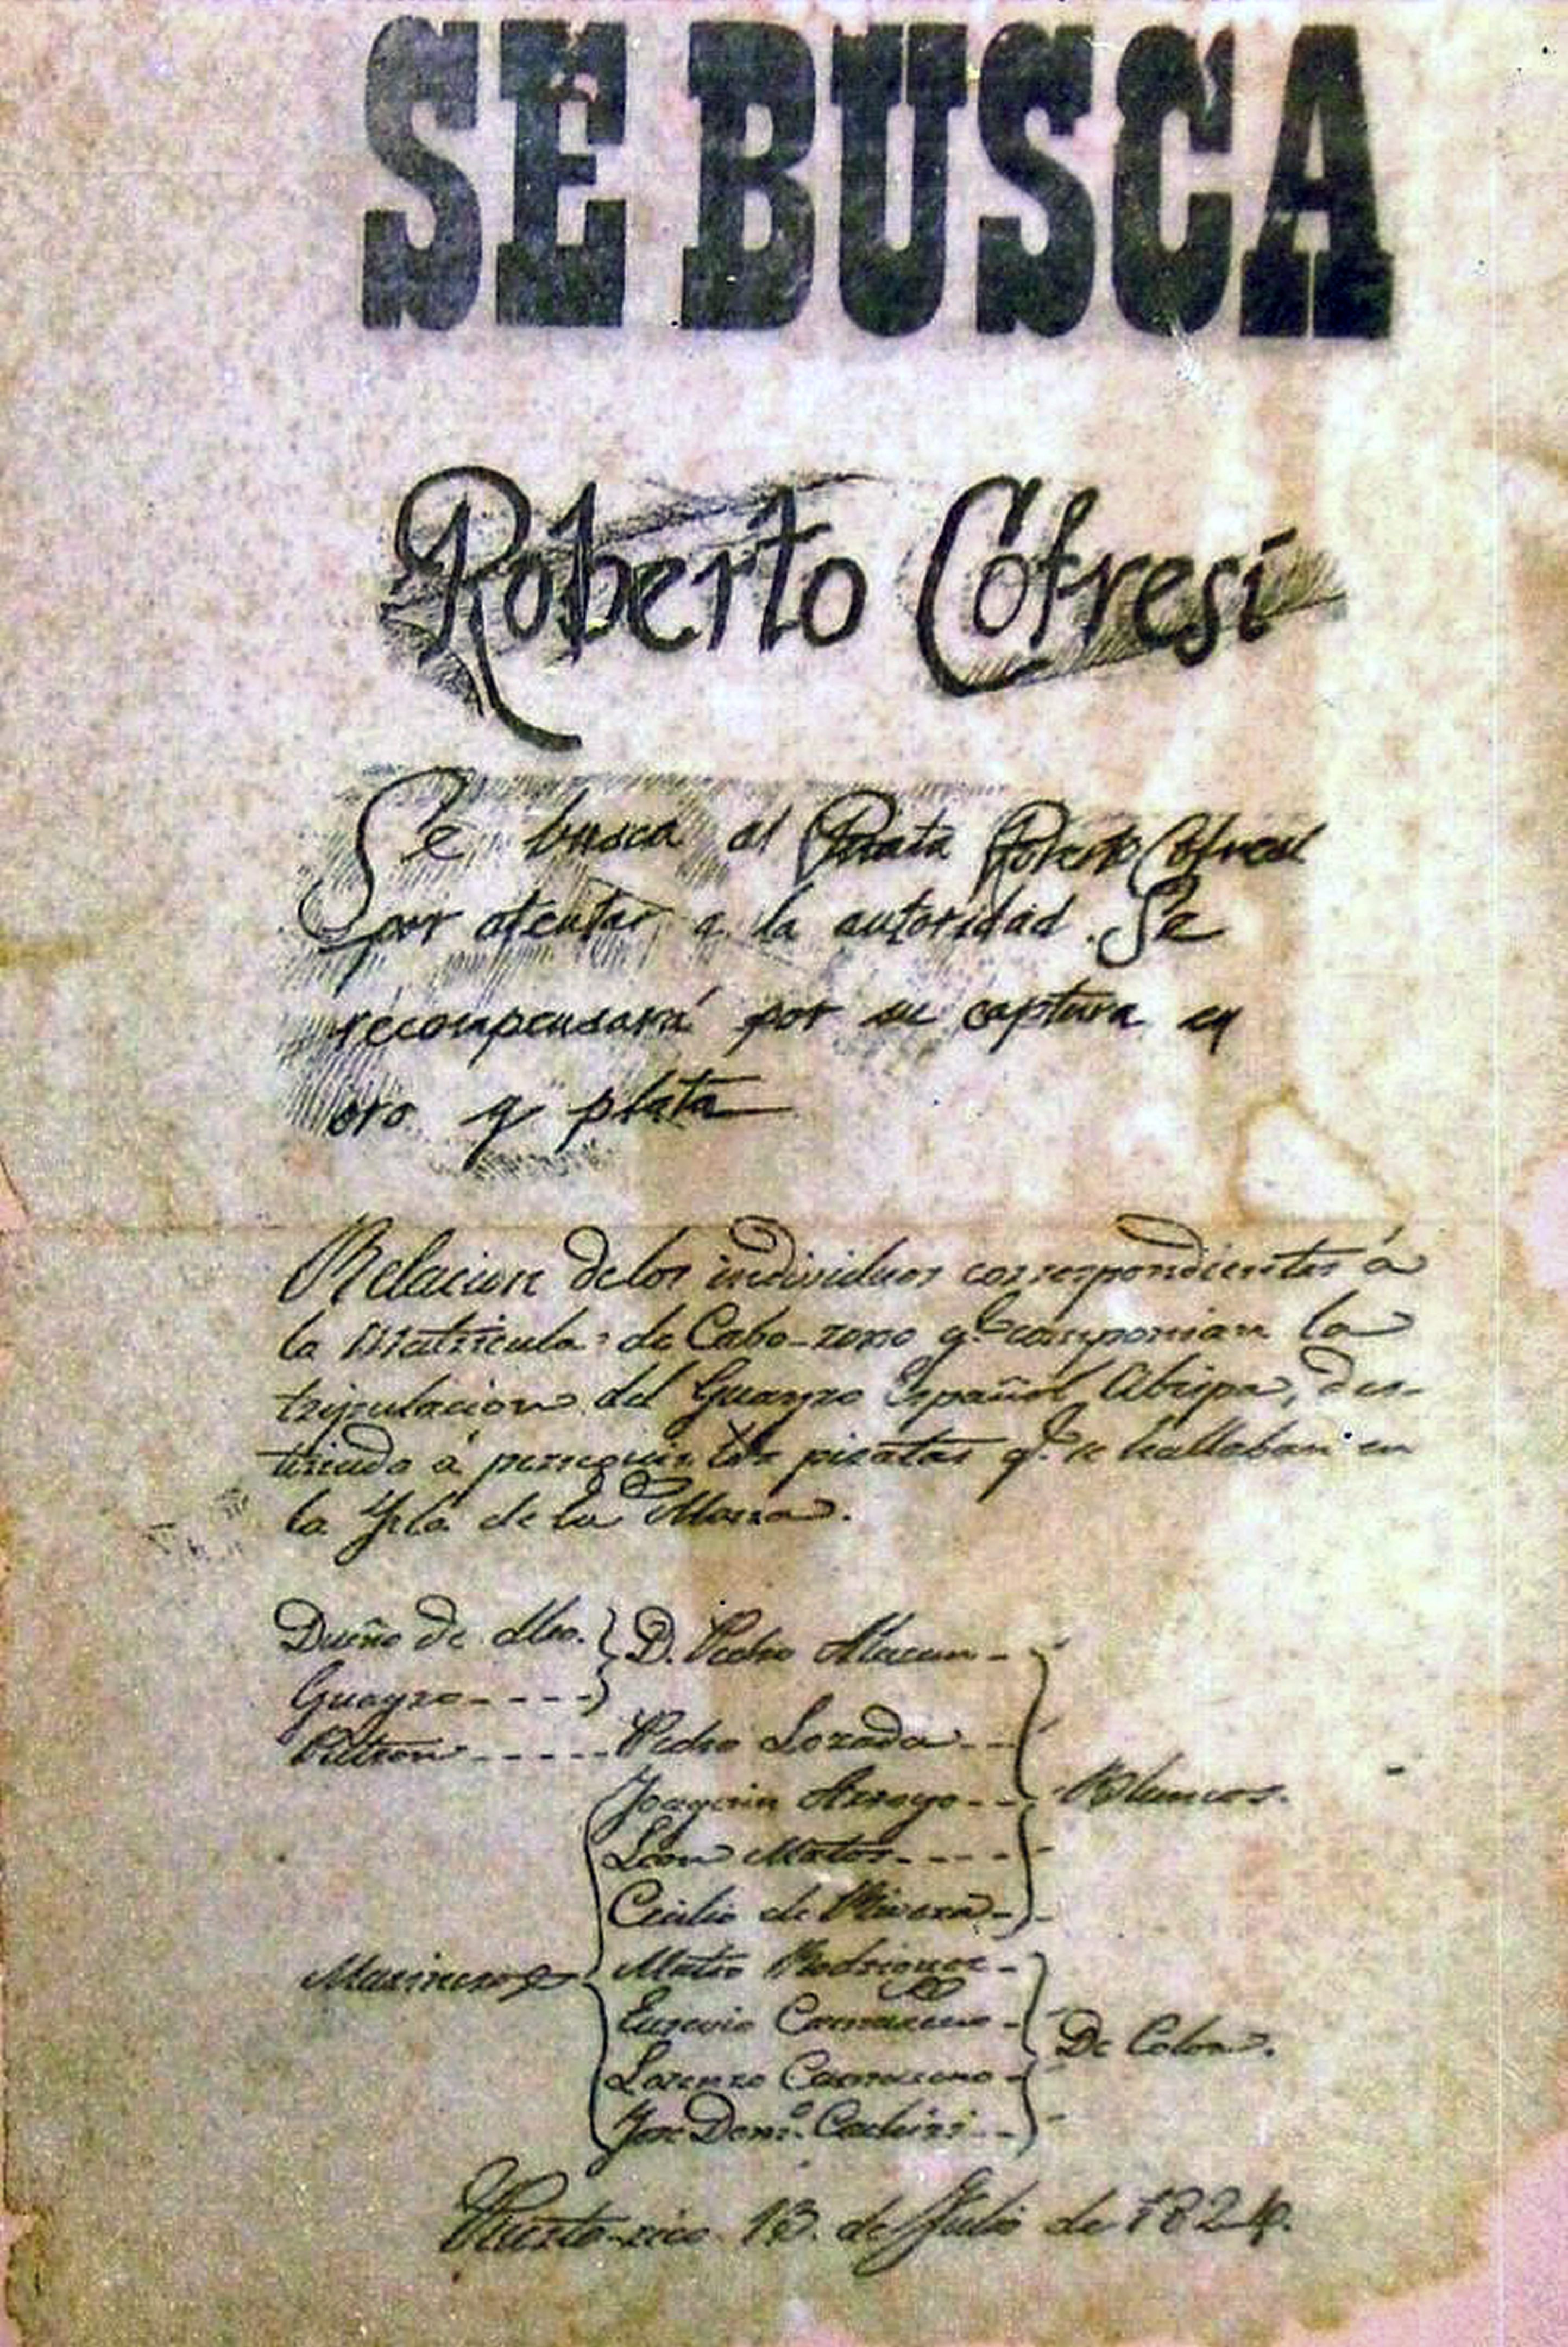 SE BUSCA
Roberto Cofresí
Se busca al Pirata Roberto Cofresí
por atentar a la autoridad. Se
recompensará por su captura en
oro y plata
Relacion delos individuos correspondientes á
la Matricula de Cabo-roxo q.e componian la
tripulacion del Guayro Español Abispa, des-
tinado á perseguir los piratas q.e se hallaban en
la Ysla de la Mona.
Dueño de dho. } D. Pedro Alacan -
Guayro - - - - }
Patron - - - - - Pedro Lozada - -
Joaquin Arroyo - - } Blancos.
Leon Matos - - - -
Cicilio de Rivera - }
Marineros { Mateo Rodriguez -
Eugenio Camacho -
De Color.
Lorenzo -
Jose Dom.o -
Puerto-rico 13. de Julio de 1824.